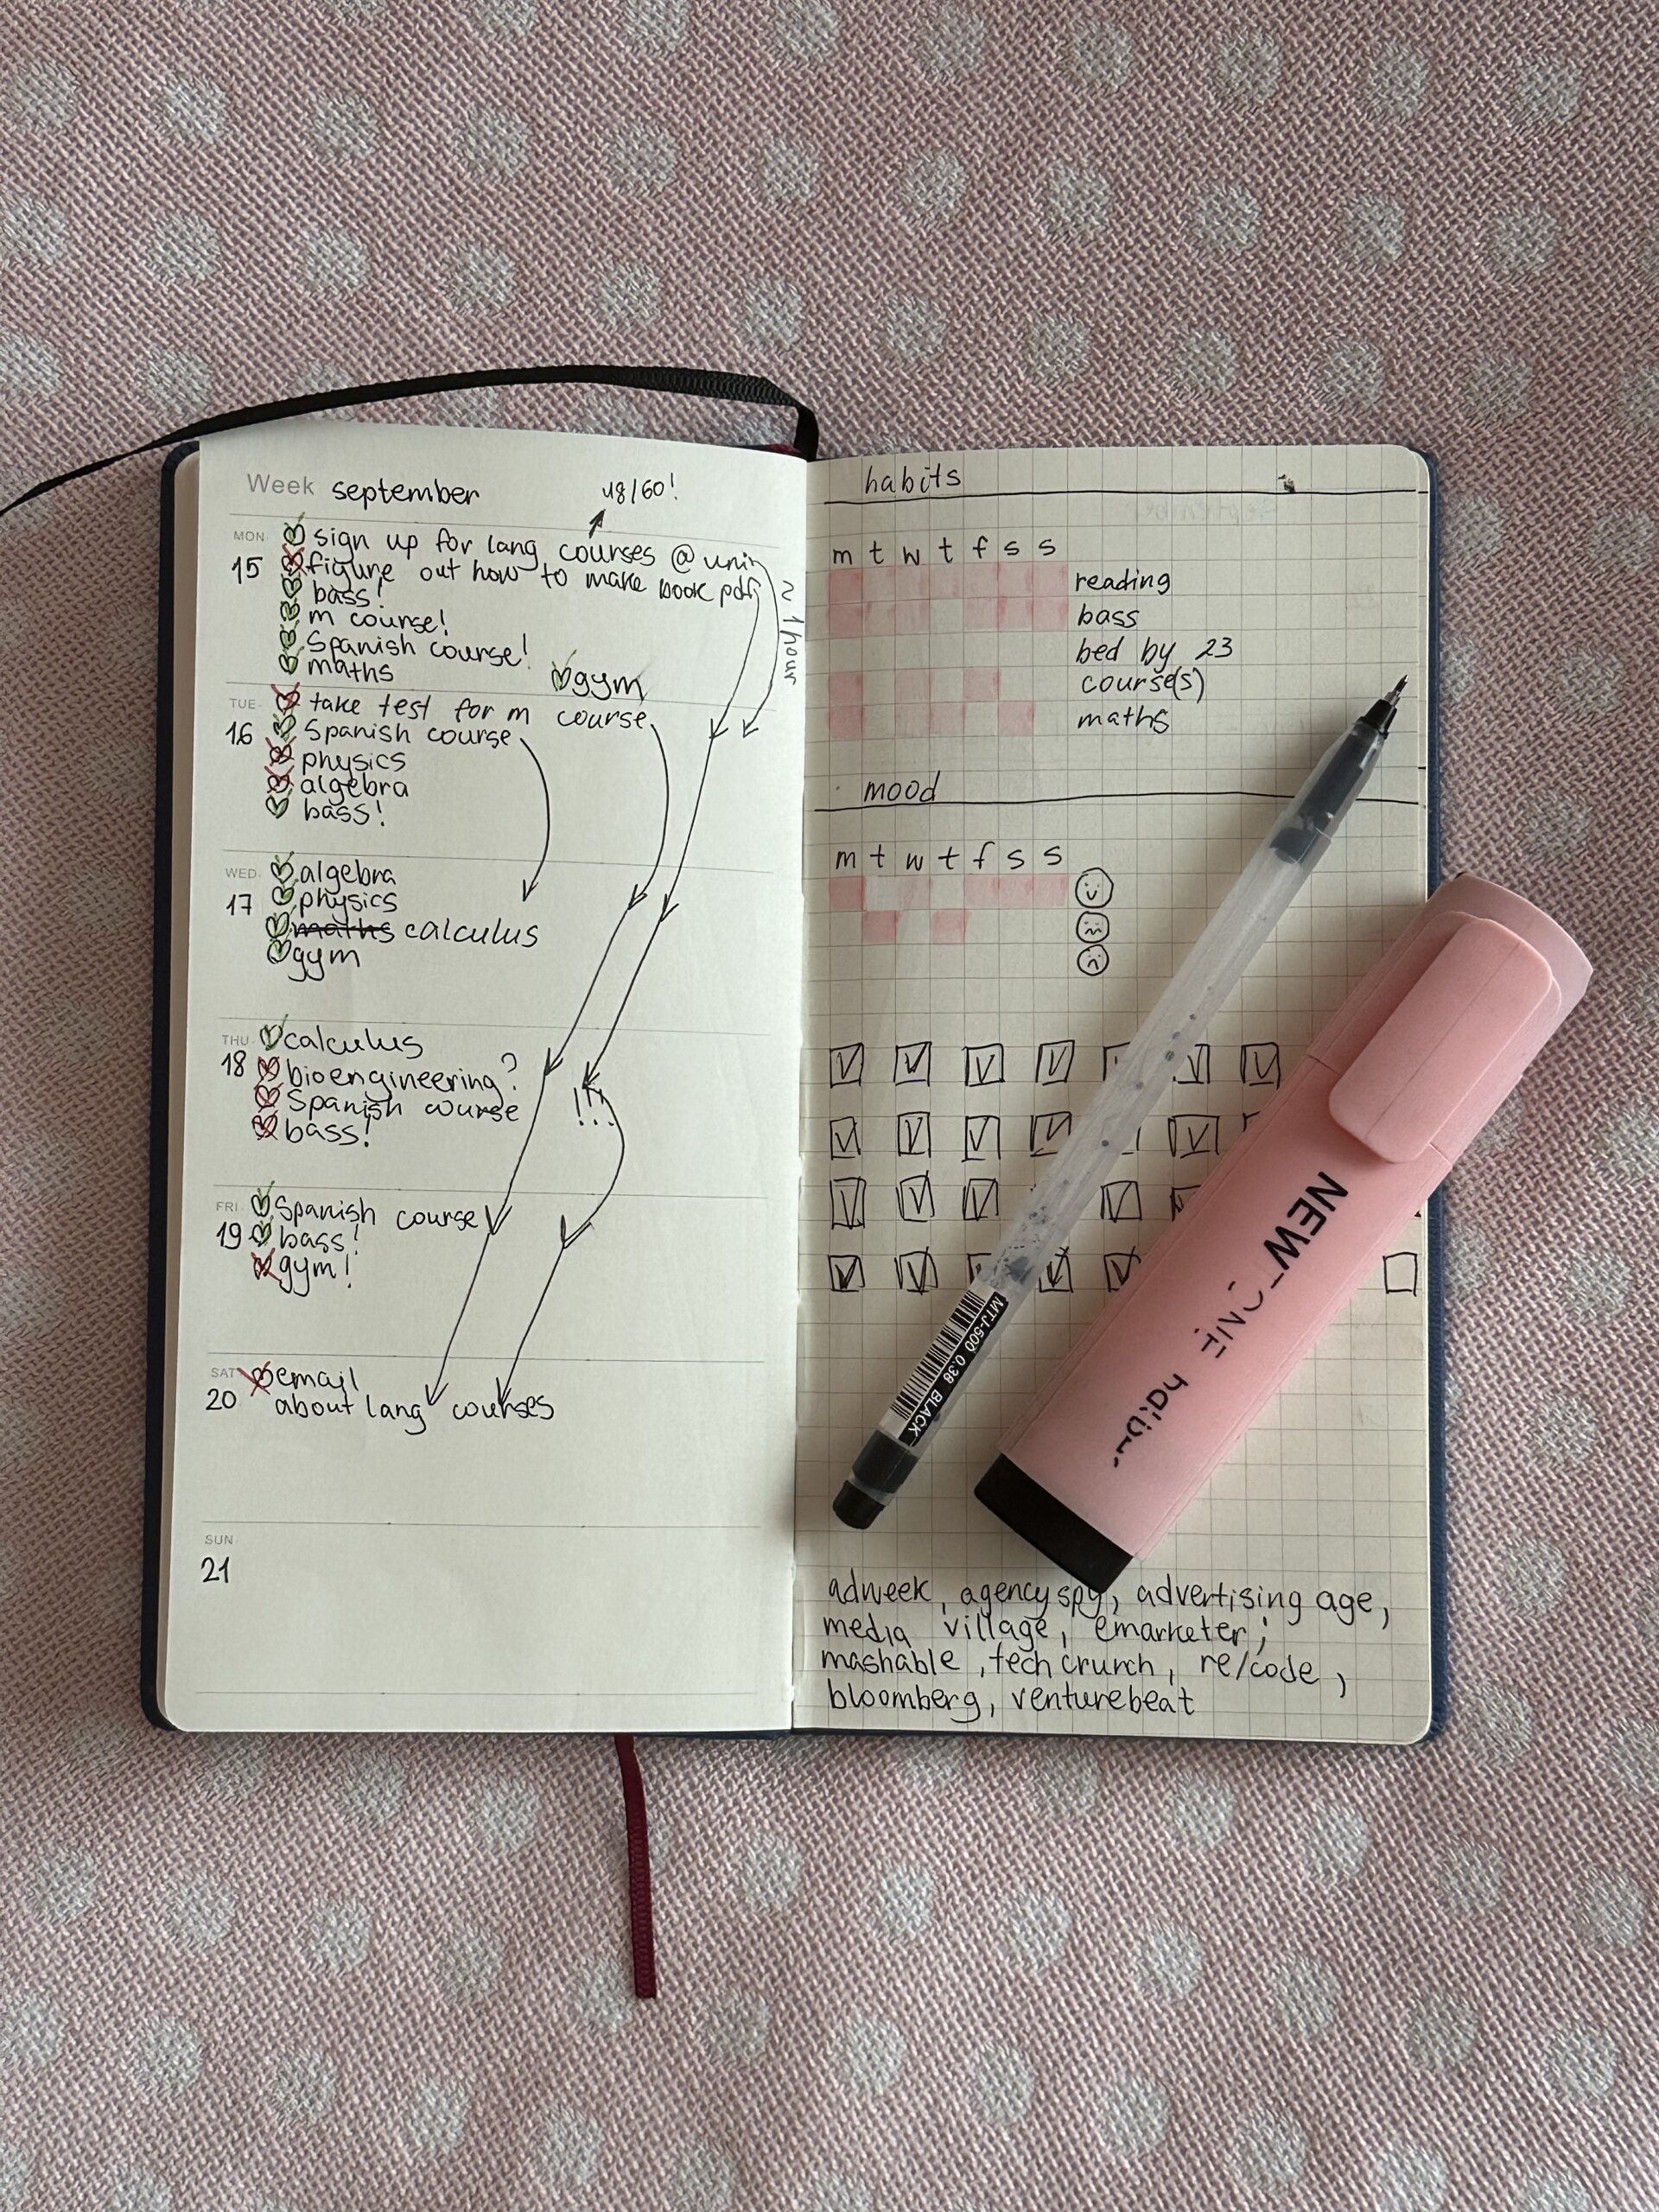 Week september
48/60!
MON 15
sign up for lang courses @ uni
figure out how to make book pdf
bass!
m course!
Spanish course!
maths
gym
~ 1 hour
TUE 16
take test for m course
Spanish course
physics
algebra
bass!
WED 17
algebra
physics
maths calculus
gym
THU 18
calculus
bioengineering?
Spanish course
bass!
!!!
FRI 19
Spanish course
bass!
gym!
SAT 20
email
about lang courses
SUN 21
habits
m t w t f s s
reading
bass
bed by 23
course(s)
maths
mood
m t w t f s s
adweek, agencyspy, advertising age,
media village, emarketer;
mashable, techcrunch, re/code,
bloomberg, venturebeat
MTJ-500 0.38 BLACK
NEW